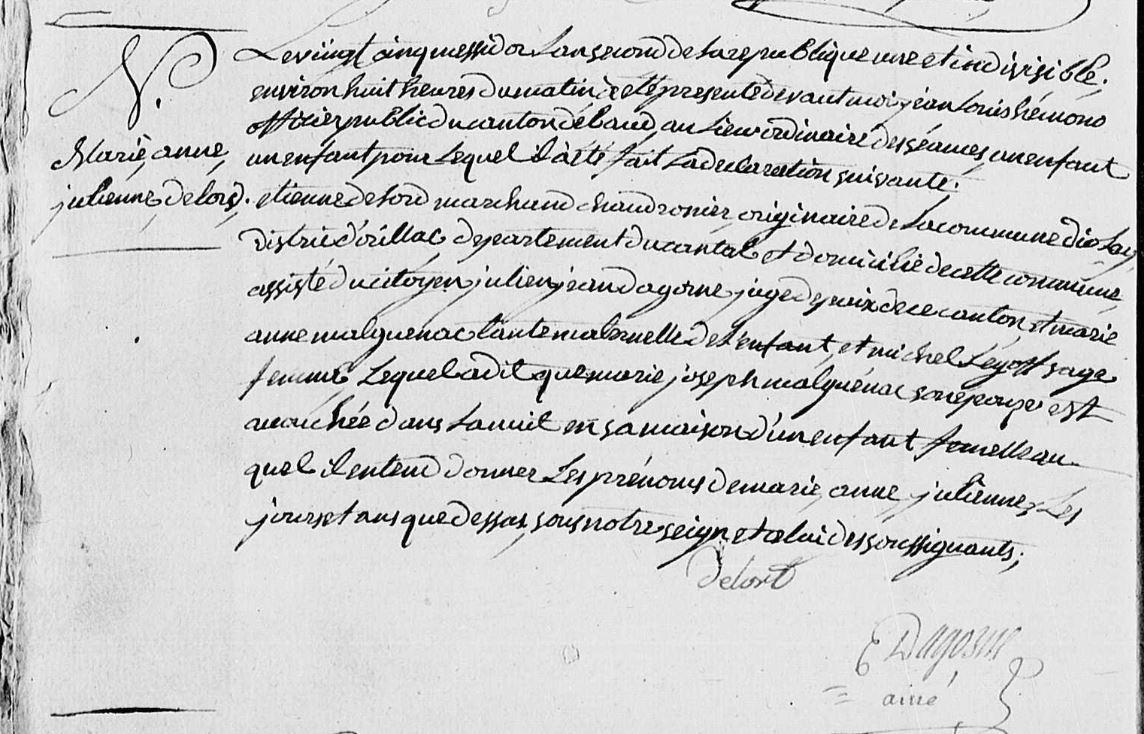 N.
Marie, anne,
julienne, delord.
Le vingt cinq messidor Lan second de la republique une et indivisible,
environ huit heures du matin à eté presenté devant moi, jean Louis hémono
officier public du canton de baud, au Lieu ordinaire des séances, un enfant
un enfant pour Lequel il à été fait La declaration suivante.
etienne delord marchand chaudronier originaire de La commune
district d'orillac departement du cantal et domicilié de cette commune,
assisté du citoyen julien jean dagorne juge de paix de ce canton, et marie
anne malguenac tante maternelle de L'enfant, et michel Legoff sage
femme, Lequel a dit que marie joseph malguénac son epouze est
acouchée dans La nuit en sa maison d'un enfant femelle au
quel il entend donner Les prénoms de marie, anne, julienne, Les
jours et ans que dessus, sous notre seign et celui des soussignants,
delort
Dagorne
ainé